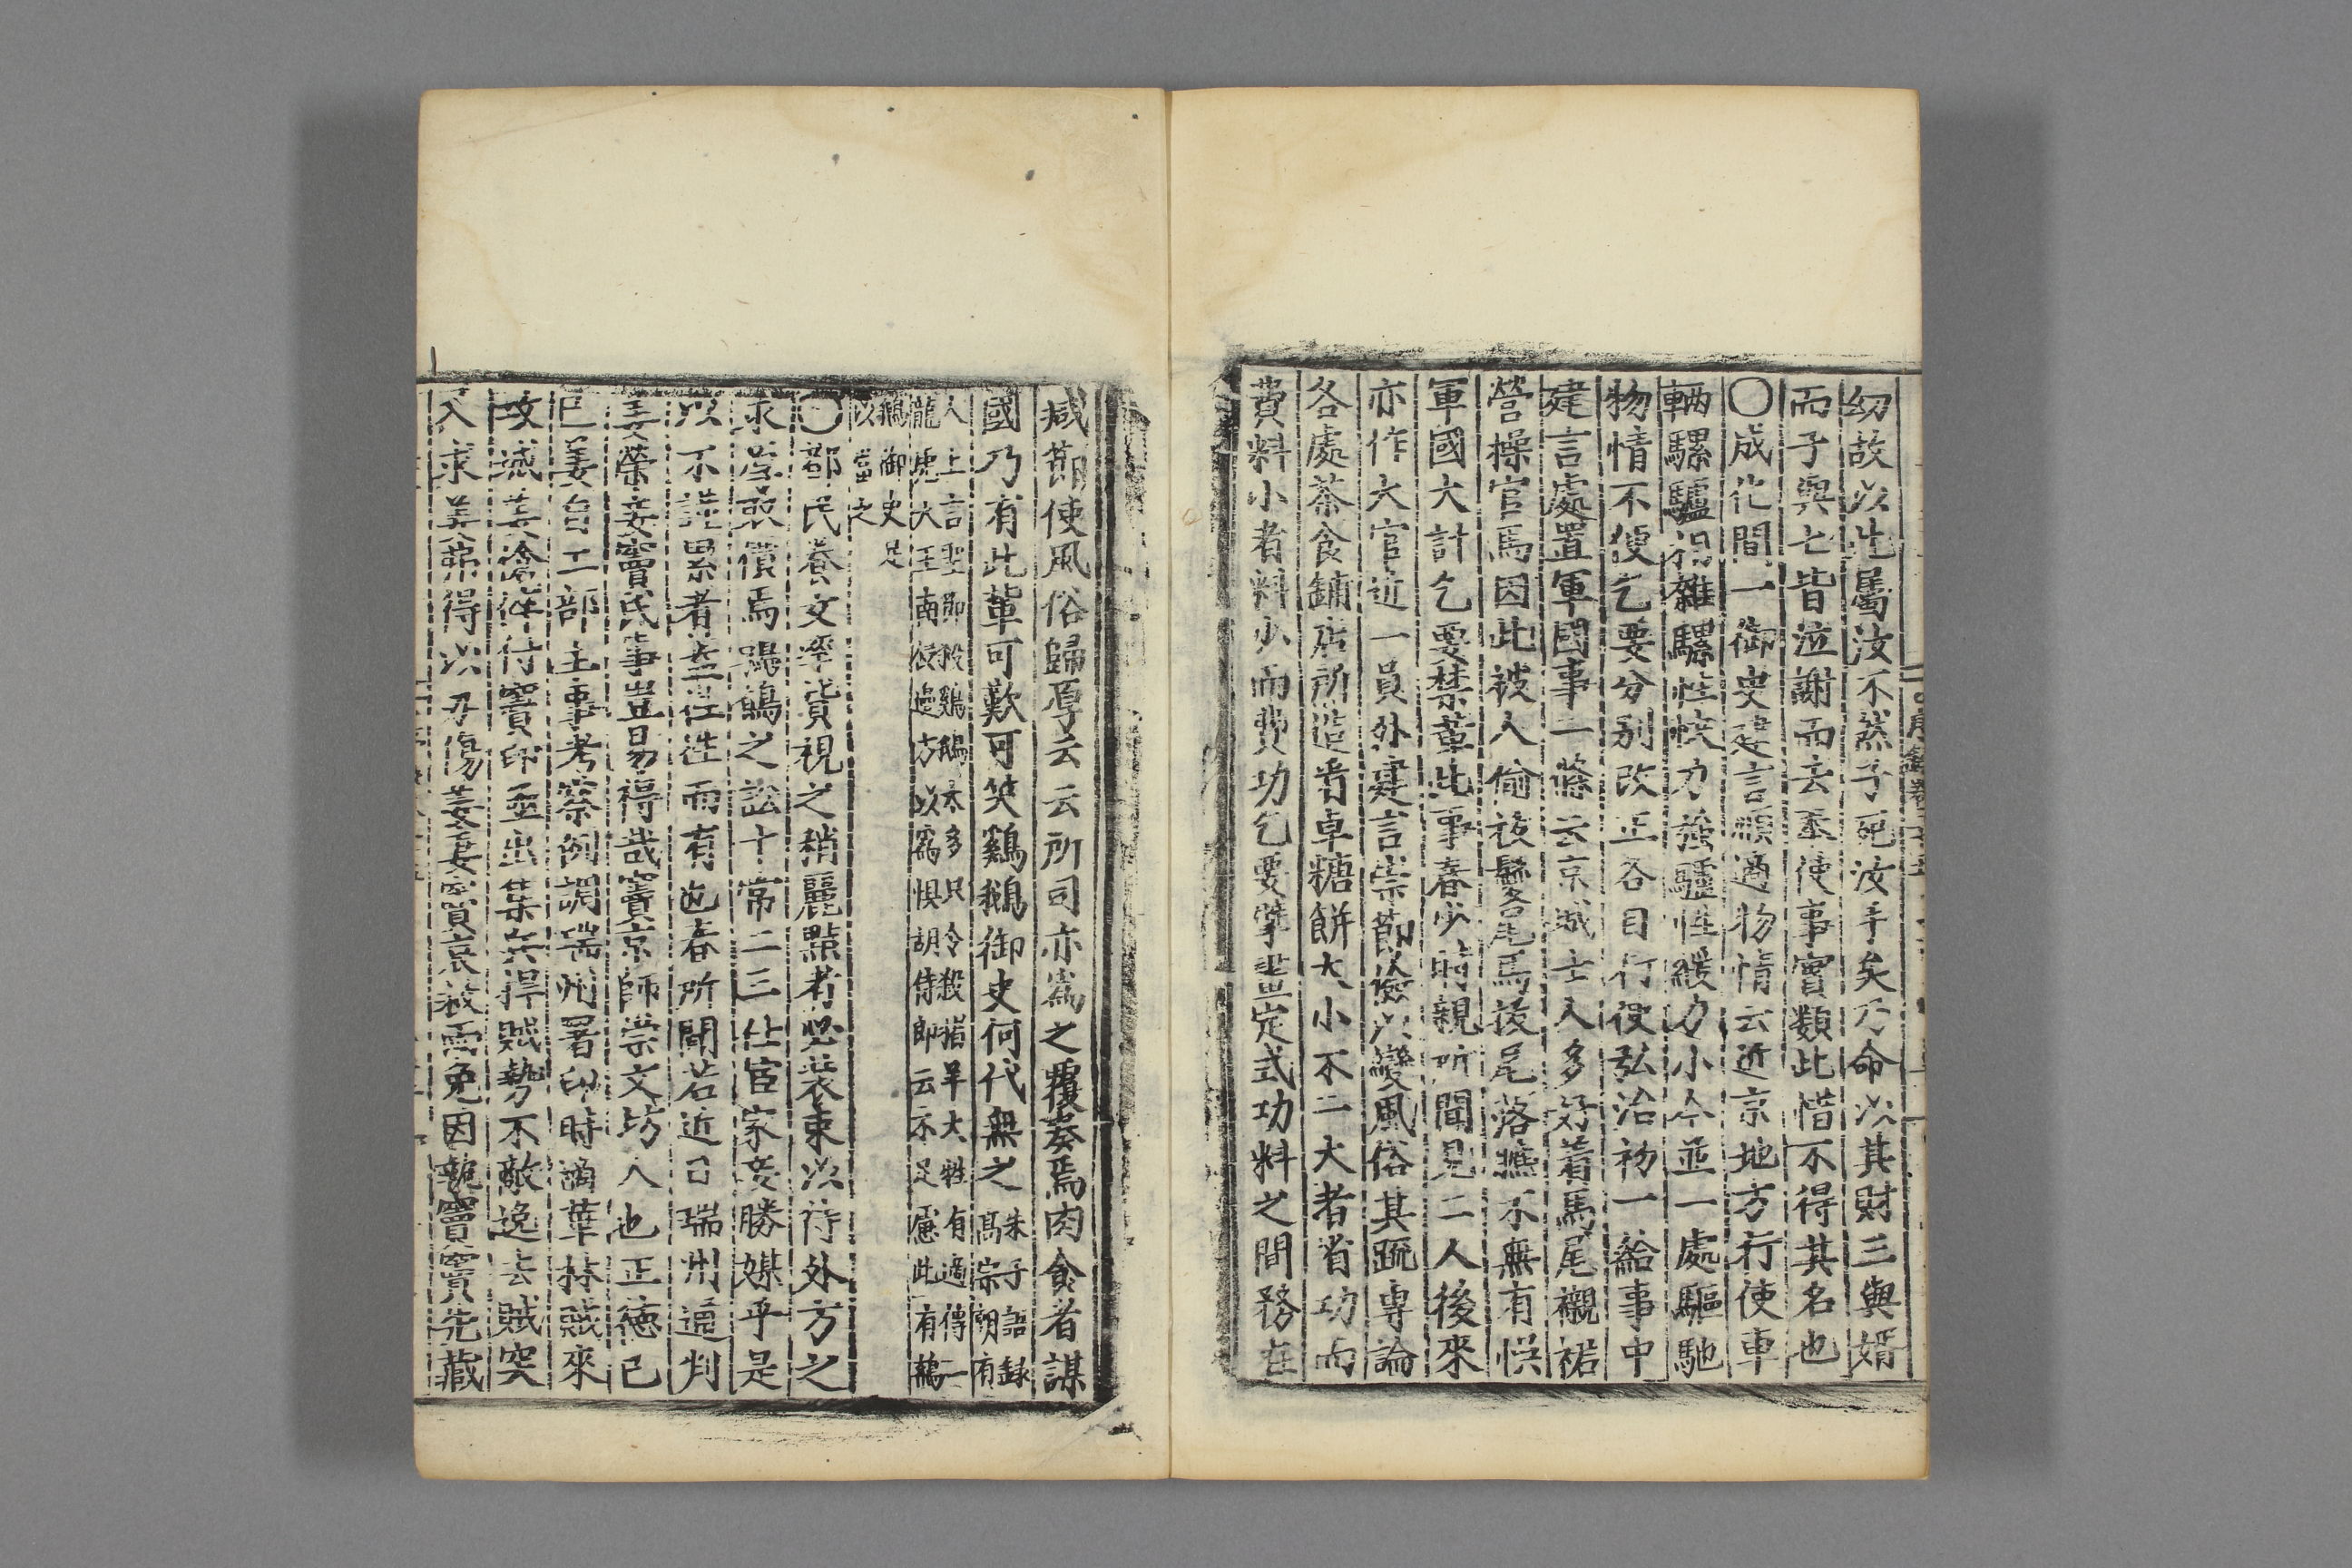 幼故以此屬汝不然予死汝手矣乃命以其財三與婿
而子與七皆泣謝而去丞使事實類此惜不得其名也
〇成化間一御史建言順適物情云近京地方行使車
輛騾驢相雜騾性快力強驢性緩力小今並一處驅馳
物情不便乞要分别改正各目行役弘治初一給事中
建言處置軍國事一條云京城士人多好着馬尾襯裙
營操官馬因此被人偷拔鬃尾馬拔尾落膘不無有悞
軍國大計乞要禁革此事春少時親所聞見二人後來
亦作大官近一員外建言崇節儉以變風俗其疏專論
各處茶食鋪店所造看卓糖餅大小不一大者省功而
費料小者料少而費功乞要擘畫定式功料之間務在
減節使風俗歸厚云云所司亦為之覆奏焉肉食者謀
國乃有此輩可歎可笑鷄鵝御史何代無之朱子語錄
高宗朝有
人上言聖節殺鷄鵝太多只令殺猪羊大牲有適傳一
龍虎大王南侵邊方以為惧胡侍郎云不足慮此有鵝
鵝御史足
以當之
〇都民養文率貨視之稍麗點者必裝束以待外方之
求為索價焉鴇之訟十常二三仕宦家妾勝媒乎是
以不謹累者盖往往而有也春所聞若近日瑞州通判
姜榮妾竇氏事豈易得哉竇京師崇文坊人也正德己
巳姜自工部主事考察例調瑞州署印時適華林賊來
攻城姜滄猝付竇印亟出集兵捍賊勢不敵逸去賊突
入求姜弗得以刃傷姜妻竇哀救而免因執竇竇先藏